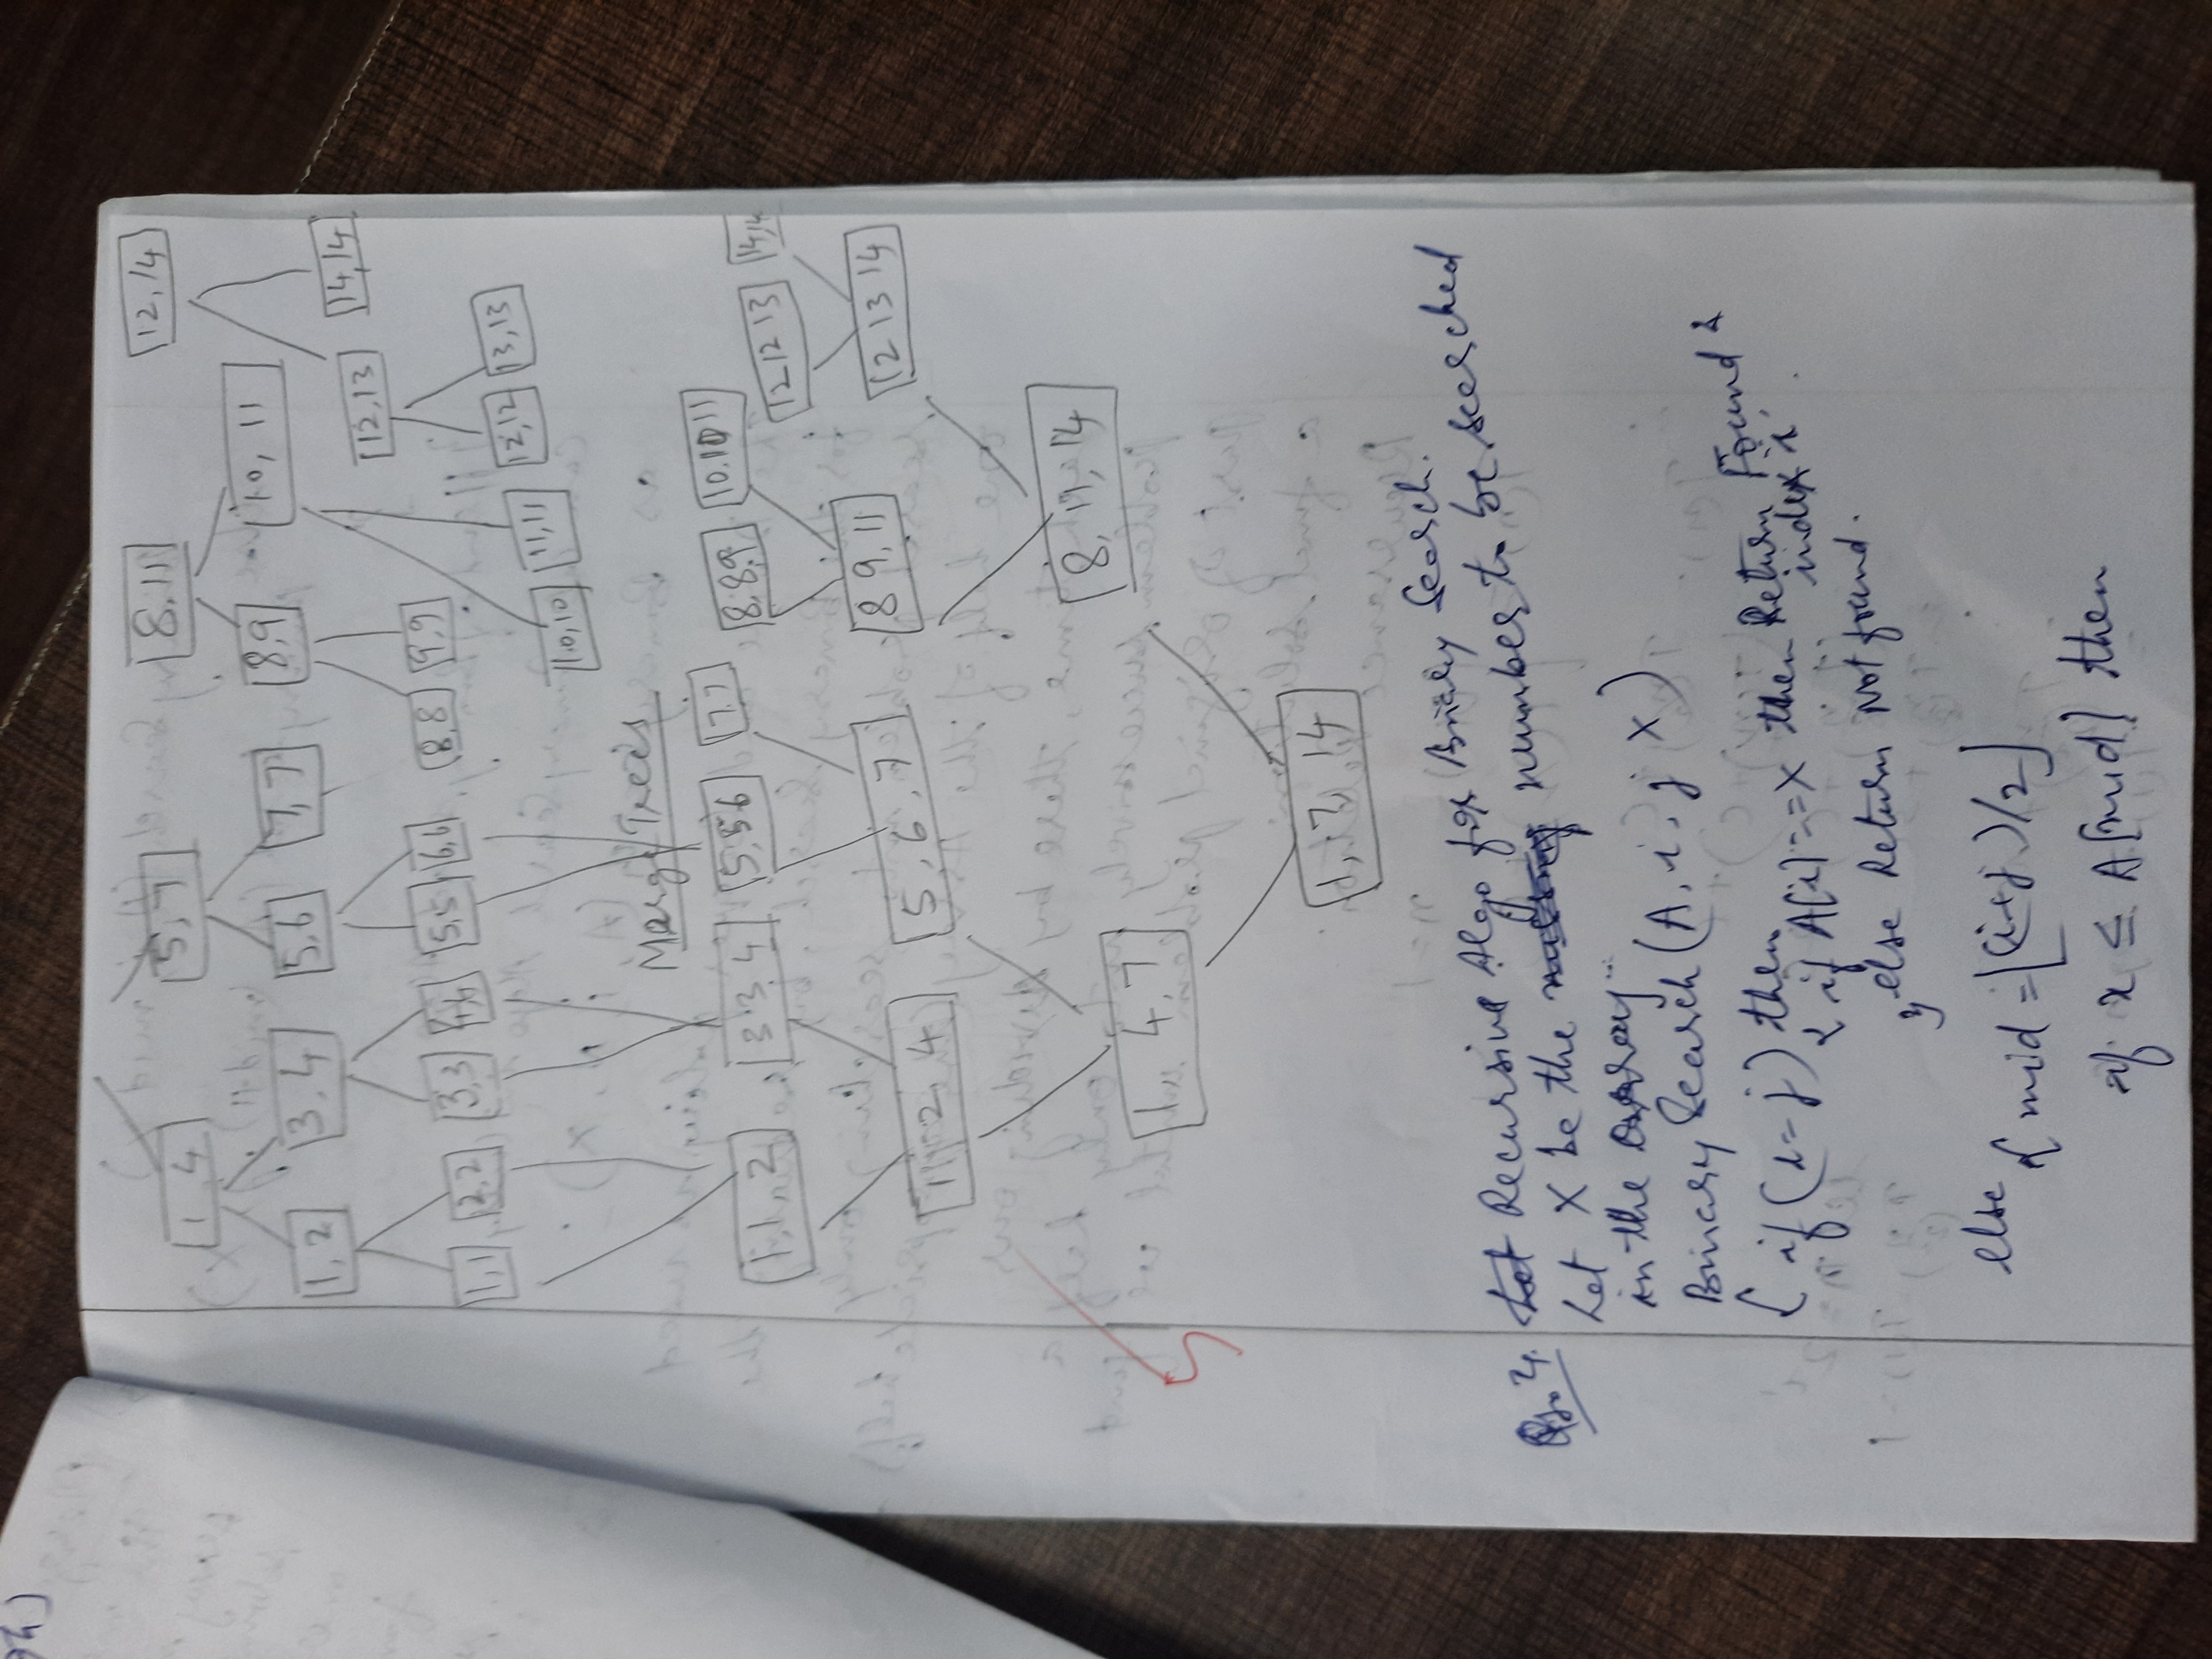 1, 4 5, 7 8, 11 12, 14
1, 2 3, 4 5,6 7, 7 8,9 10, 11
12,13 14,14
1,1 2,2 3,3 4,4 5,5 6,6 8,8 9,9
10,10 11,11 12,12 13,13
Merge Trees
1,1 2 3 3, 4 5,5 6 7,7 8,8,9 10,10 11 12 12 13 14,14
1, 2, 4 5, 6, 7 8 9, 11 12 13 14
1, 4, 7 8, 11, 14
1, 7, 14
5
Qs. 2. Recursive Algo for Binary Search.
Let X be the number to be searched
in the array
Binary Search (A, i, j X)
{ if (i = j) then
{ if A[i] == X then Return Found &
index i
else Return Not found.
}
else { mid = ⌊(i+j)/2⌋
if x ≤ A[mid] then